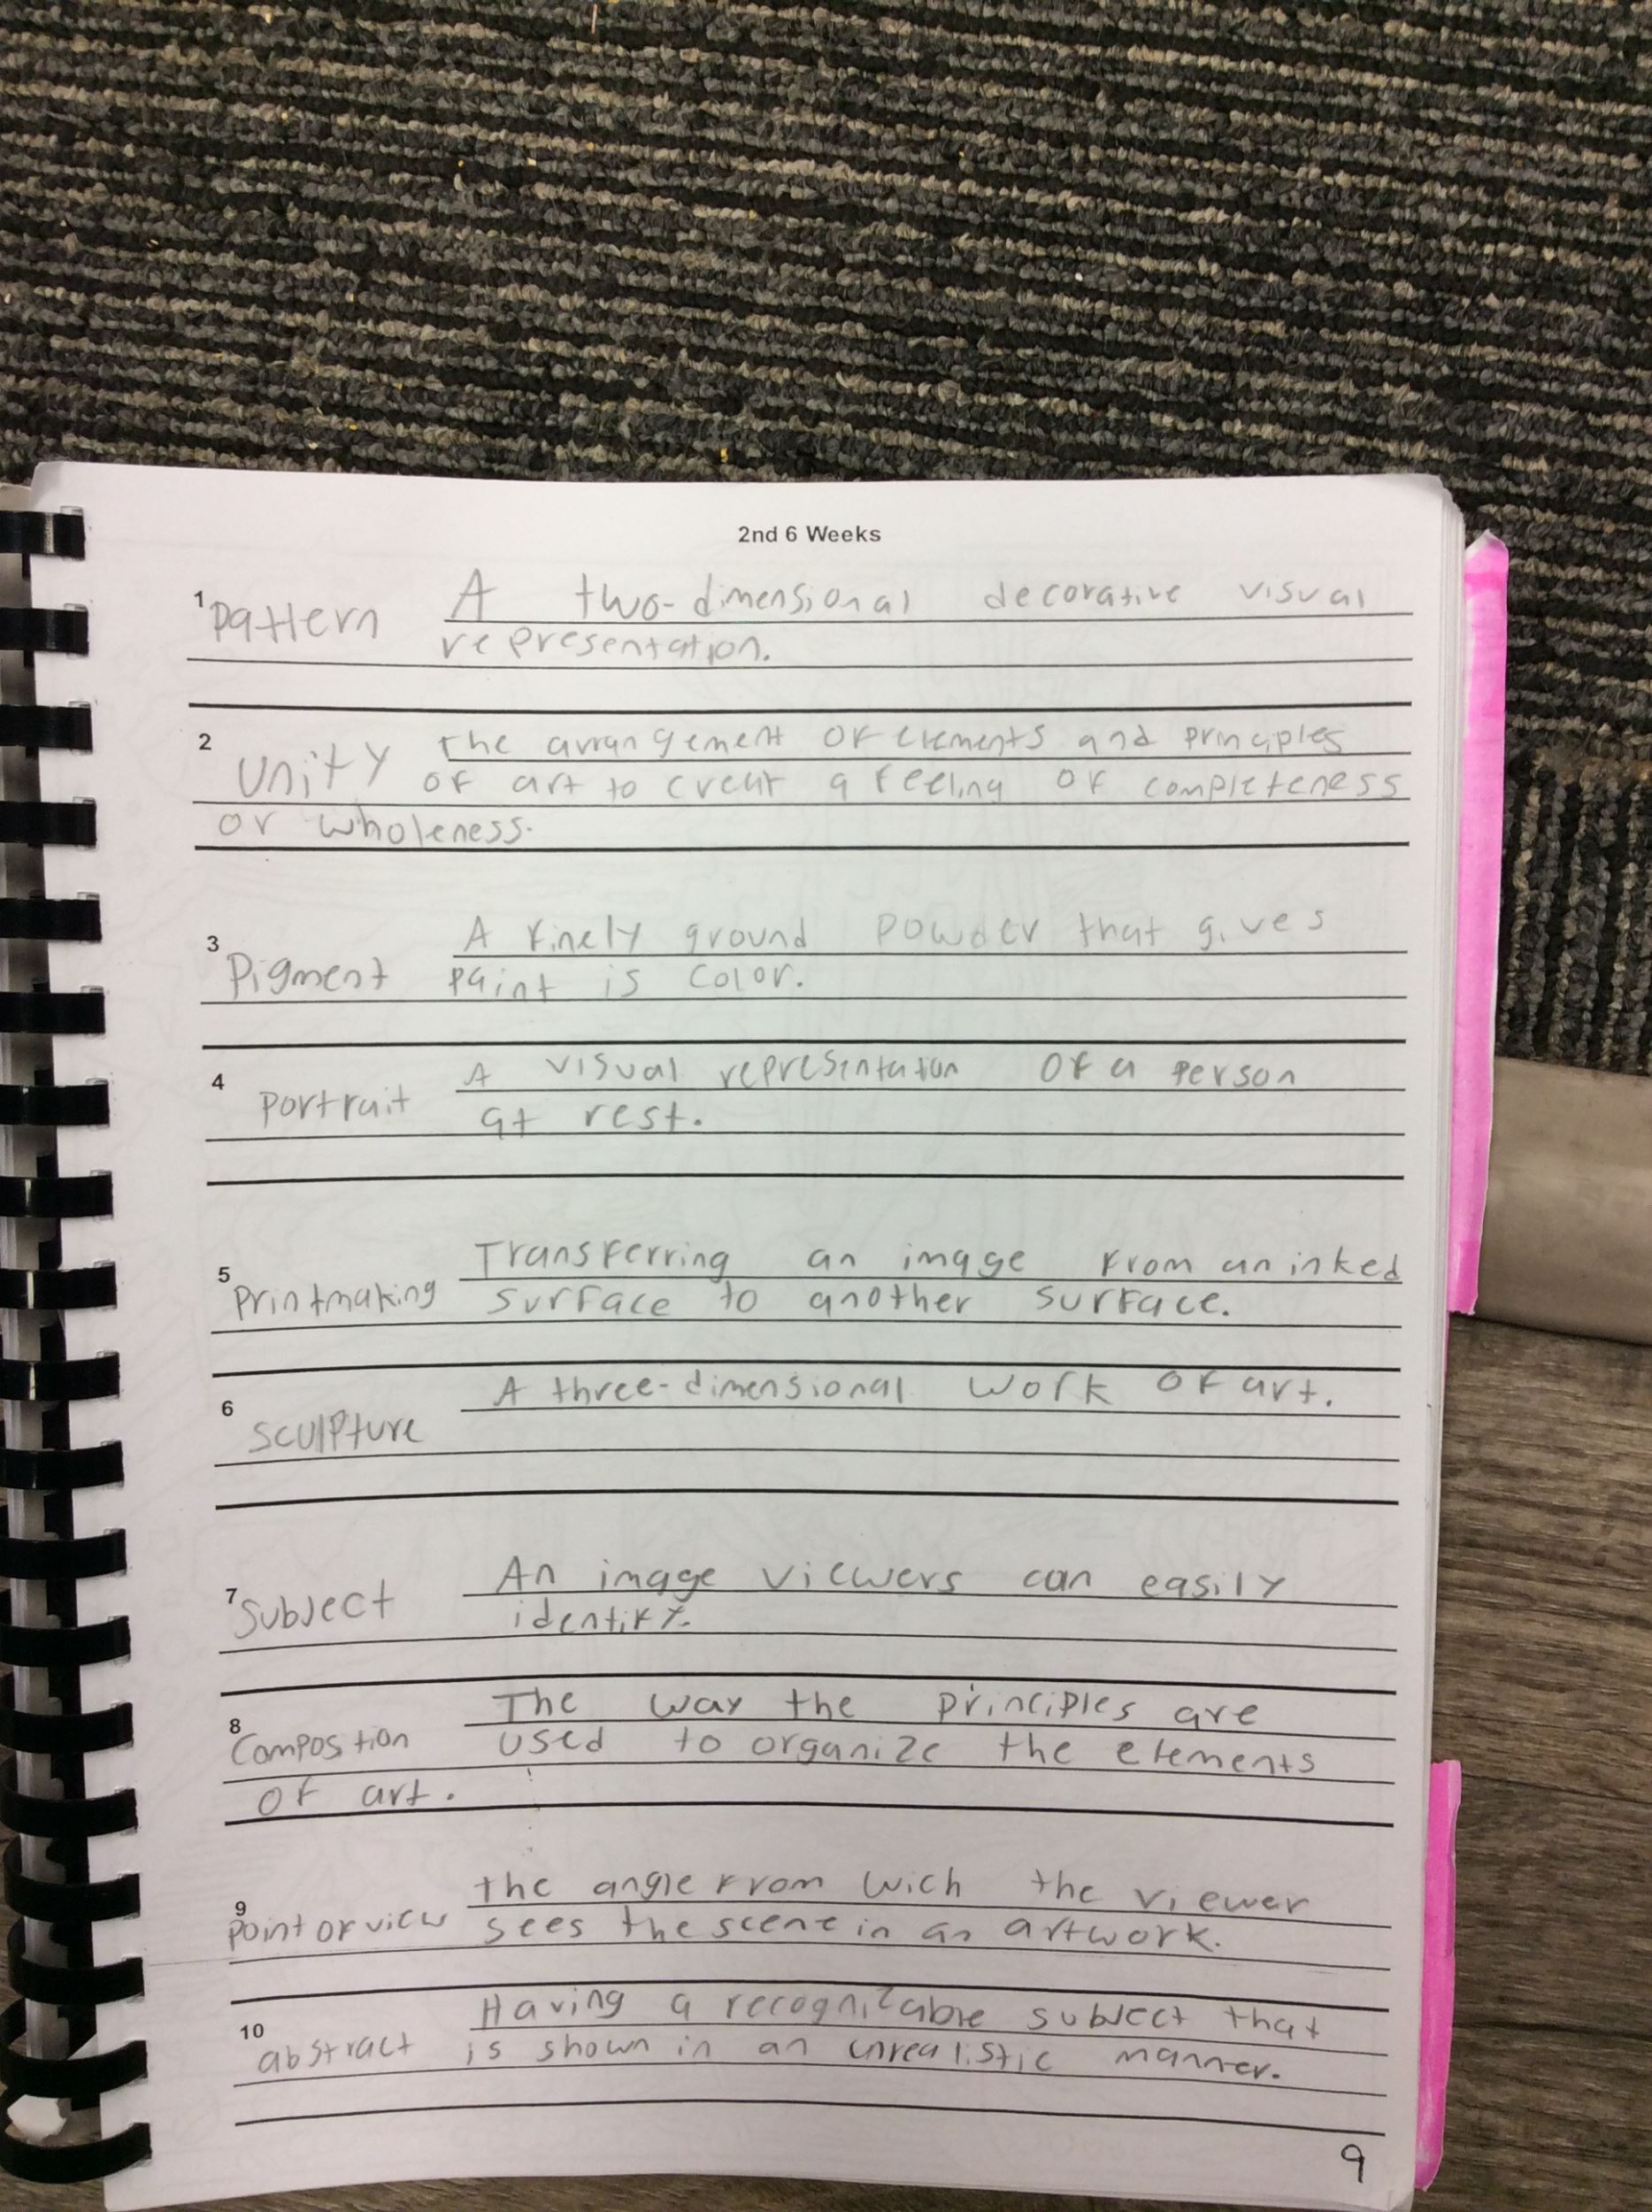 2nd 6 Weeks
1 Pattern A two-dimensional decorative visual
representation.
2 Unity the arrangement of elements and principles
of art to creat a feeling of completeness
or wholeness.
3 Pigment A finely ground powder that gives
paint is color.
4 Portrait A visual representation of a person
at rest.
5 Printmaking Transferring an image from an inked
surface to another surface.
6 Sculpture A three-dimensional work of art.
7 Subject An image viewers can easily
identify.
8 Compostion The way the principles are
used to organize the elements
of art.
9 Point of view the angle from wich the viewer
sees the scene in an artwork.
10 abstract Having a recognizable subject that
is shown in an unrealistic manner.
9